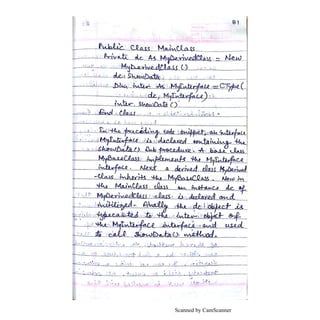 81
Public Class MainClass
Private dc As MyDerivedClass = New
MyDerivedClass()
dc.ShowData
Dim inter As MyInterface = CType(
dc, MyInterface)
inter.ShowData()
End Class
In the preceding code snippet, an interface
MyInterface is declared containing the
ShowData() Sub procedure. A base class
MyBaseClass implements the MyInterface
interface. Next a derived class MyDerived
-Class inherits the MyBaseClass. Now in
the MainClass class an instance dc of
MyDerivedClass class is declared and
initilized. Finally the dc object is
typecasted to the inter object of
the MyInterface interface and used
to call ShowData() method.
Scanned by CamScanner